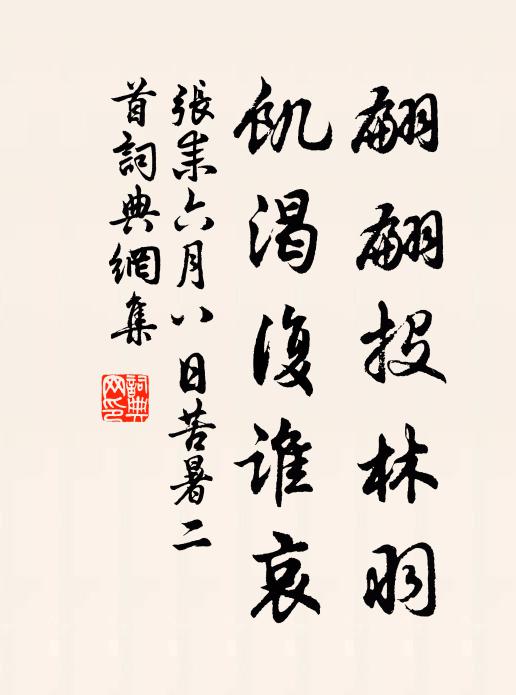 翩翩投林羽
飢渴復誰哀
張耒六月八日苦暑二
首詞典網集
詞典
网印